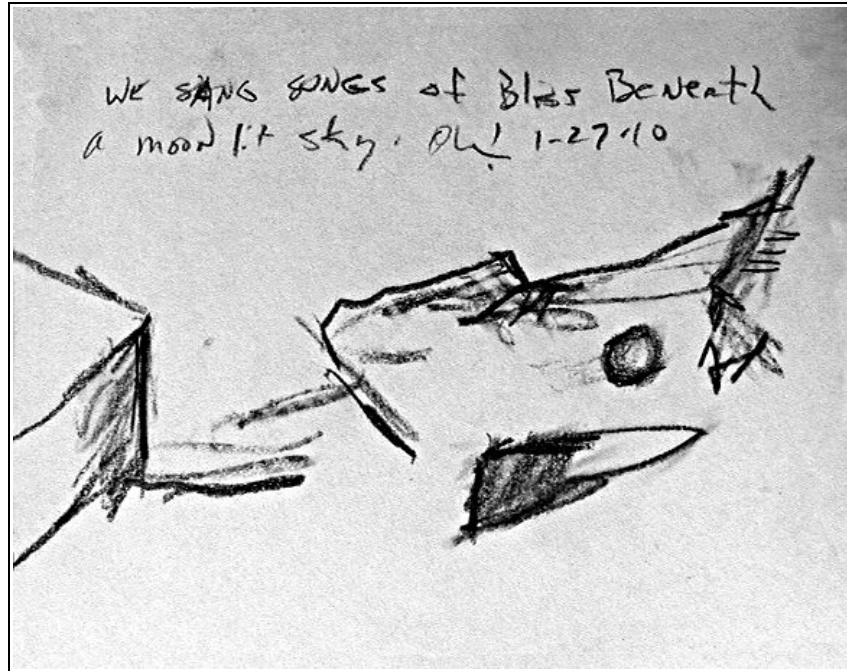 WE SANG SONGS of Bliss Beneath
a moon lit sky. Oh! 1-27-10